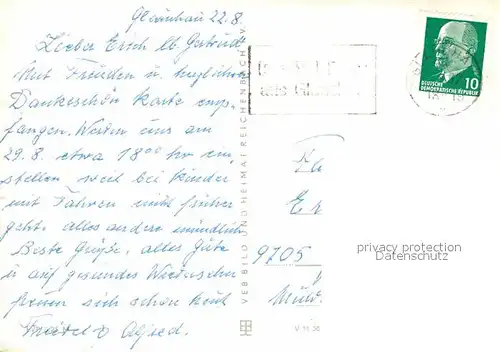 Glauchau 22.8.
Lieber Erich lb. Gertrud
Mit Freuden u. herzlichen
Dankeschön Karte emp-
fangen. Werden uns am
29.8. etwa 18⁰⁰ Uhr ein-
stellen weil bei Kinder
mit Fahren nicht früher
geht. alles andere mündlich
Beste Grüße, alles Gute
u. auf gesundes Wiedersehn
freuen sich schon heut
Alfred.
VEB BILD UND HEIMAT REICHENBACH I. V.
aus
DEUTSCHE
DEMOKRATISCHE REPUBLIK
10
9705
V 11 36
privacy protection
Datenschutz